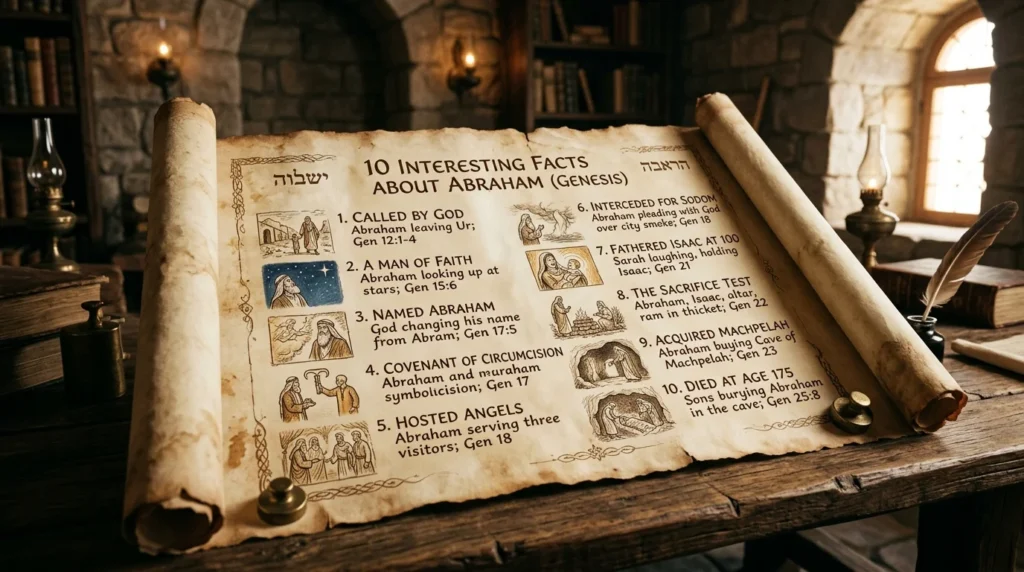 10 INTERESTING FACTS
ABOUT ABRAHAM (GENESIS)
ישלוה
הראבה
1. CALLED BY GOD
Abraham leaving Ur;
Gen 12:1-4
2. A MAN OF FAITH
Abraham looking up at
stars; Gen 15:6
3. NAMED ABRAHAM
God changing his name
from Abram; Gen 17:5
4. COVENANT OF CIRCUMCISION
Abraham and muraham
symbolicision; Gen 17
5. HOSTED ANGELS
Abraham serving three
visitors; Gen 18
6. INTERCEDED FOR SODOM
Abraham pleading with God
over city smoke; Gen 18
7. FATHERED ISAAC AT 100
Sarah laughing, holding
Isaac; Gen 21
8. THE SACRIFICE TEST
Abraham, Isaac, altar,
ram in thicket; Gen 22
9. ACQUIRED MACHPELAH
Abraham buying Cave of
Machpelah; Gen 23
10. DIED AT AGE 175
Sons burying Abraham
in the cave; Gen 25:8